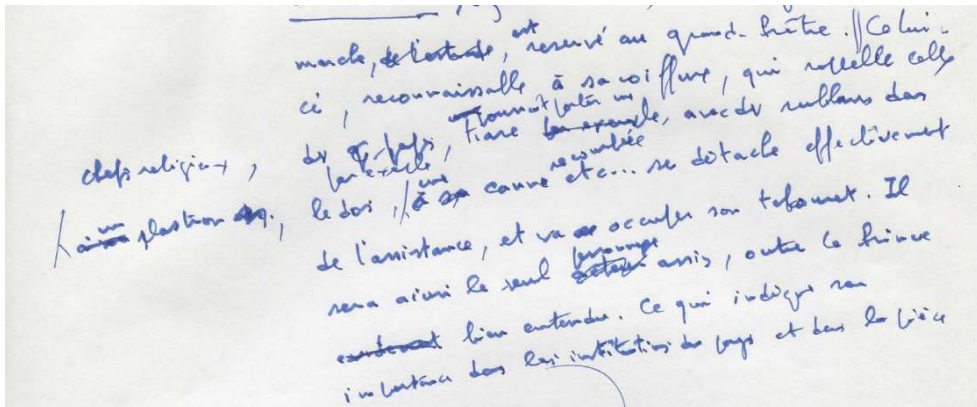 marche, de l'estrade, est reservé au grand-prêtre. // Celui-
ci, reconnaissable à sa coiffure, qui rappelle celle
pourrait porter une
chefs religieux, des papes, tiare par exemple, avec des rubans dans
par exemple, recourbée
à un plastron, le dos, une canne etc... se détache effectivement
de l'assistance, et va occuper son tabouret. Il
sera ainsi le seul personnage assis, outre le prince
bien entendu. Ce qui indique son
importance dans les institutions du pays et dans la pièce